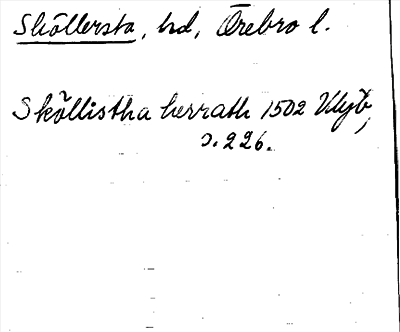 Sköllersta, hd, Örebro l.
Sköllistha herrath 1502 Vlyb,
s. 226.